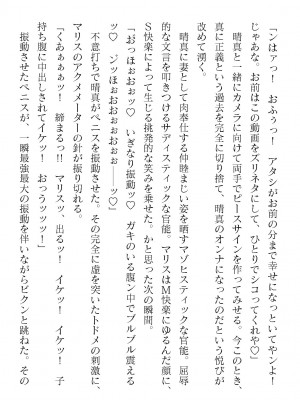 「ンはアっ!　おふぅっ!　アタシがお前の分まで幸せになっといてやンよ!
じゃあな。お前はこの動画をズリネタにして、ひとりでシコってくれや♡」
晴真と一緒にカメラに向けて両手でピースサインを作ってみせる。今このとき、
真に正義という過去を完全に切り捨て、晴真のオンナになったのだという悦びが
改めて湧く。
晴真に妻として肉奉仕する仲睦まじい姿を晒すマゾヒスティックな官能。屈辱
的な文言を叩きつけるサディスティックな官能。マリスはM快楽にゆるんだ顔に、
S快楽によって生じる挑発的な笑みを乗せた。かと思った次の瞬間。
「おっほぉおぉッ♡　いきなり振動ッ♡　ガキのいる腹ン中でブルブル震える
ッ♡　ジッほぉおおぉぉおぉぉ　ッ♡」
不意打ちで晴真がペニスを振動させた。その完全に虚を突いたトドメの刺激に、
マリスのアクメメーターの針が振り切れる。
「くあぁぁぁっ!　締まるっ!!　マリスッ、出るッ!　イケッ!　イケッ!　子
持ち腹に中出しされてイケッ!　おっうッッッ!」
振動させたペニスが、一瞬最強最大の振動を伴いながらビクンと跳ねた。その